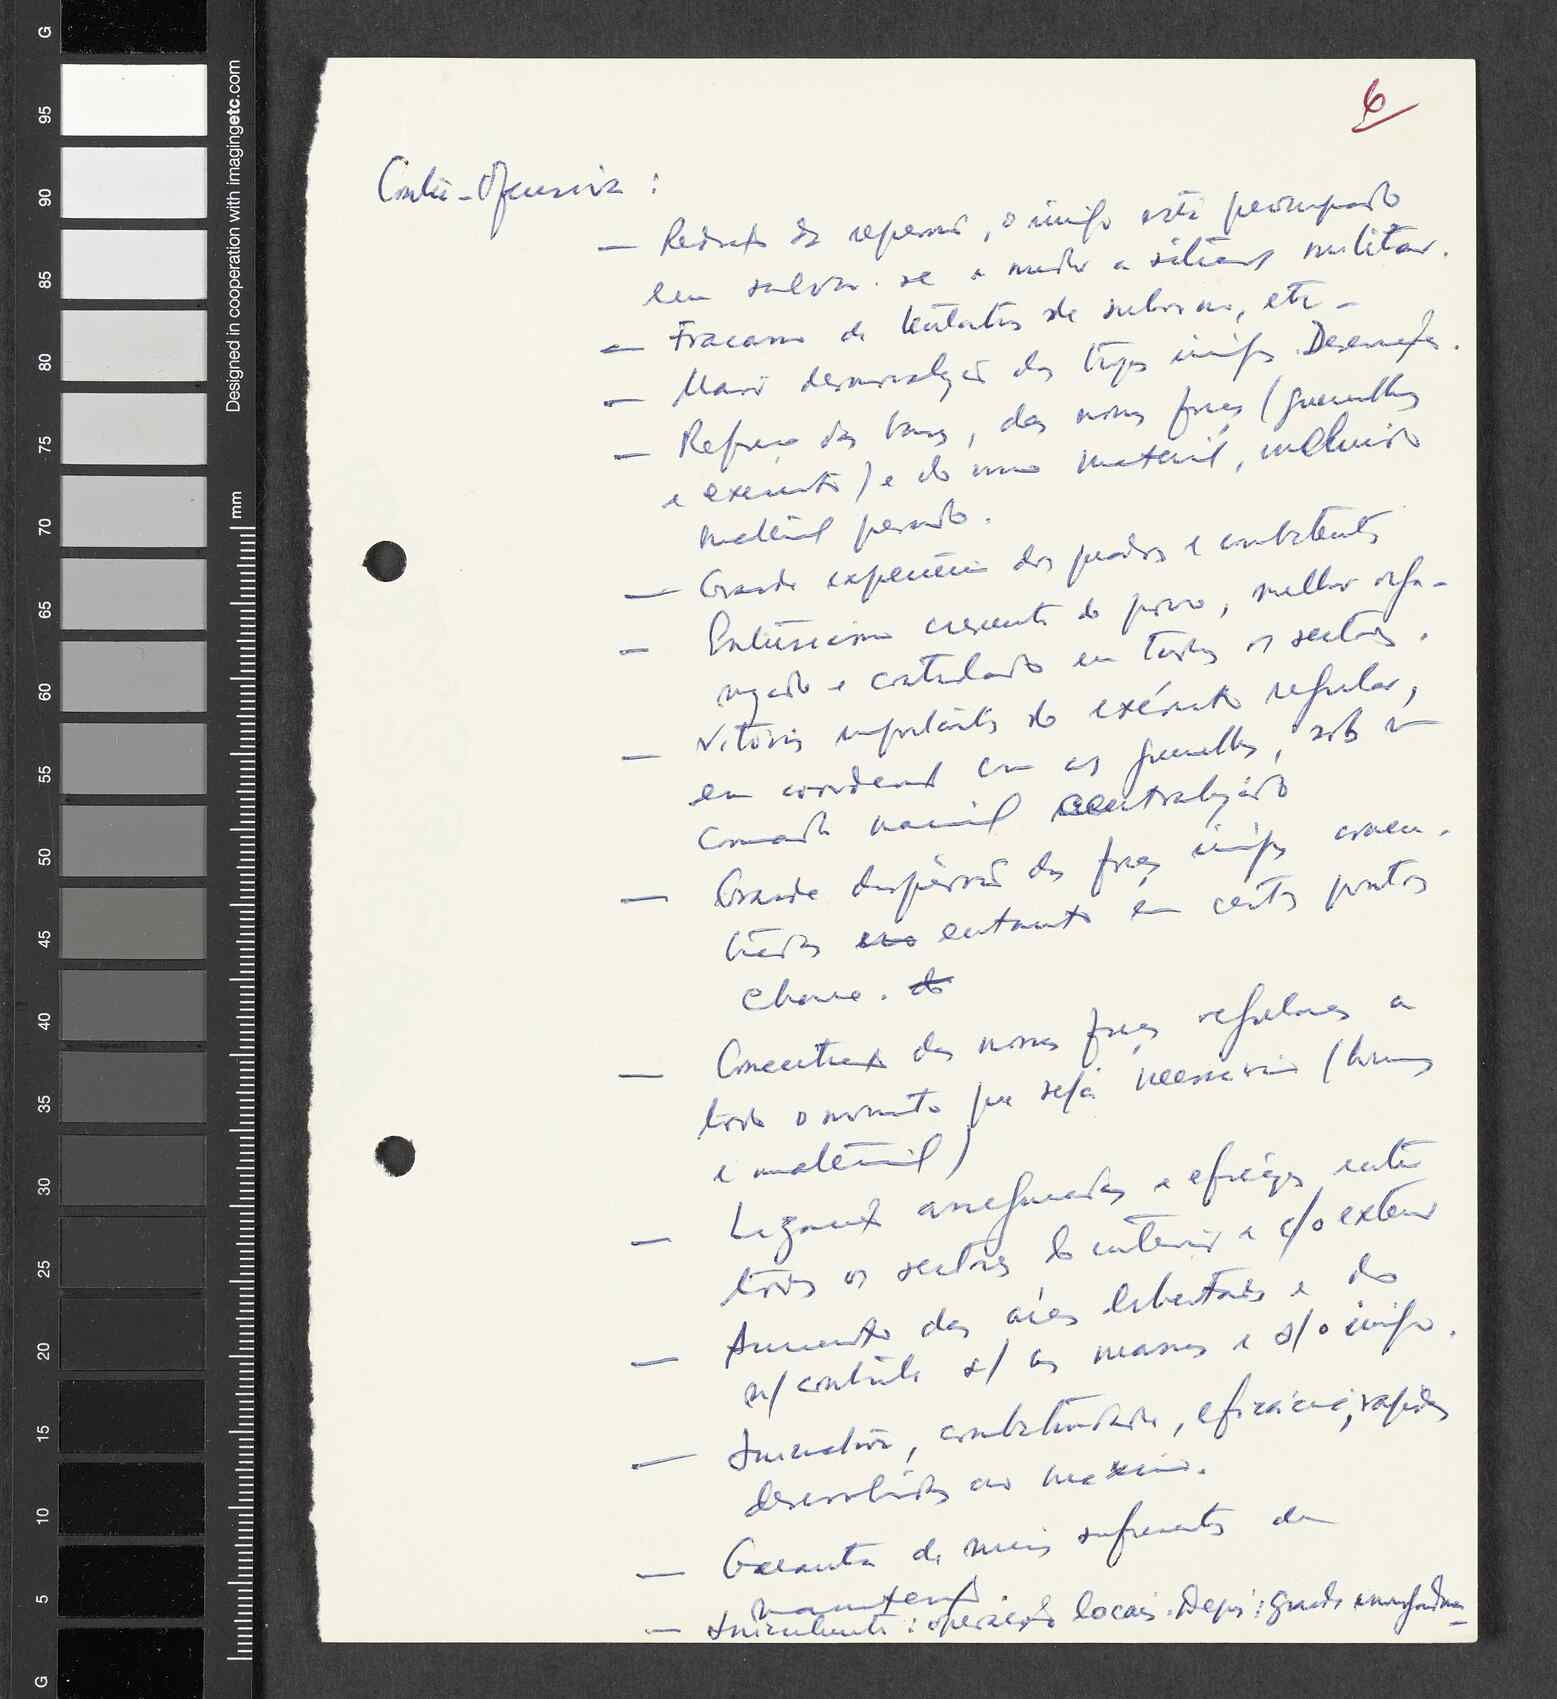 6
Contra-Ofensiva :
— Redução da repressão, o inimigo está preocupado
em salvar-se e mudar a situação militar.
— Fracasso de tentativas de suborno, etc -
— Maior desmoralização das tropas inimigas. Deserções.
— Reforço das bases, das nossas forças (guerrilhas
e exército) e do nosso material, incluindo
material pesado.
— Grande experiência dos quadros e combatentes
— Entusiasmo crescente do povo, melhor orga-
nizado e controlado em todos os sectores.
— Vitórias importantes do exército regular,
em coordenação com as guerrilhas, sob um
comando nacional centralizado
— Grande dispersão das forças inimigas concen-
tradas no entanto em certos pontos
chave.
— Concentração das nossas forças regulares a
todo o momento que seja necessário (homens
e material)
— Ligações asseguradas e eficazes entre
todos os sectores do interior e c/o exterior
— Aumento das áreas libertadas e do
n/ controle s/ as massas e s/o inimigo.
— Iniciativa, combatividade, eficácia, rapidez
desenvolvidas ao máximo.
— Garantia de meios suficientes de
manutenção.
— Inicialmente: operações locais. Depois: grande envergadura